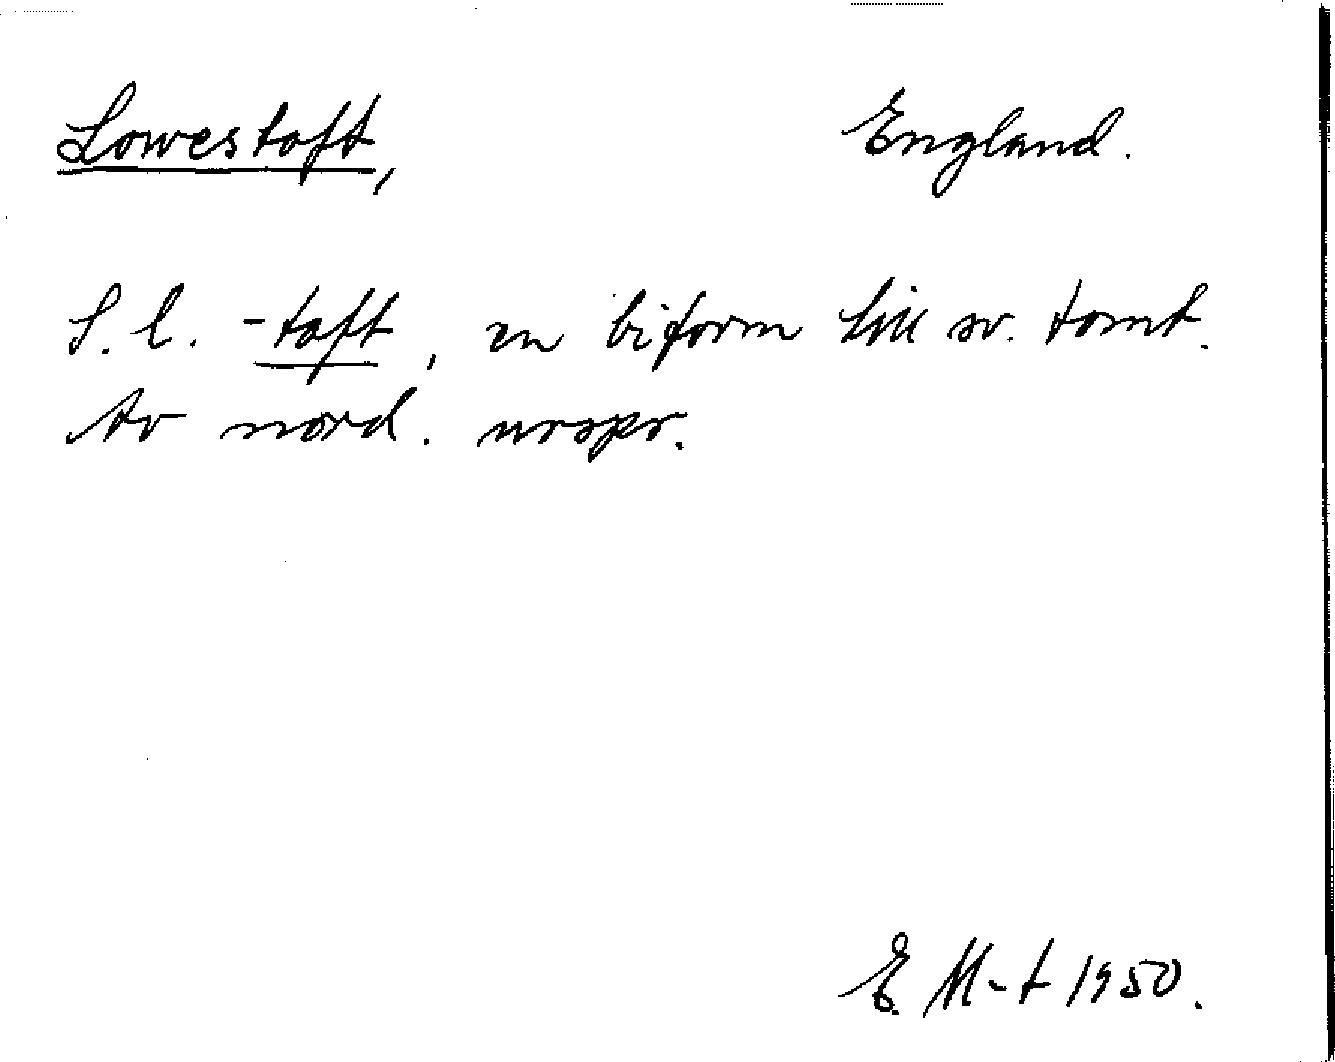 Lowestoft, England.
S. l. -toft, en biform till sv. tomt.
Av nord. urspr.
E M-t 1950.